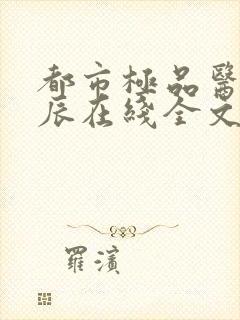 都市極品醫
辰在綫全文
羅濱